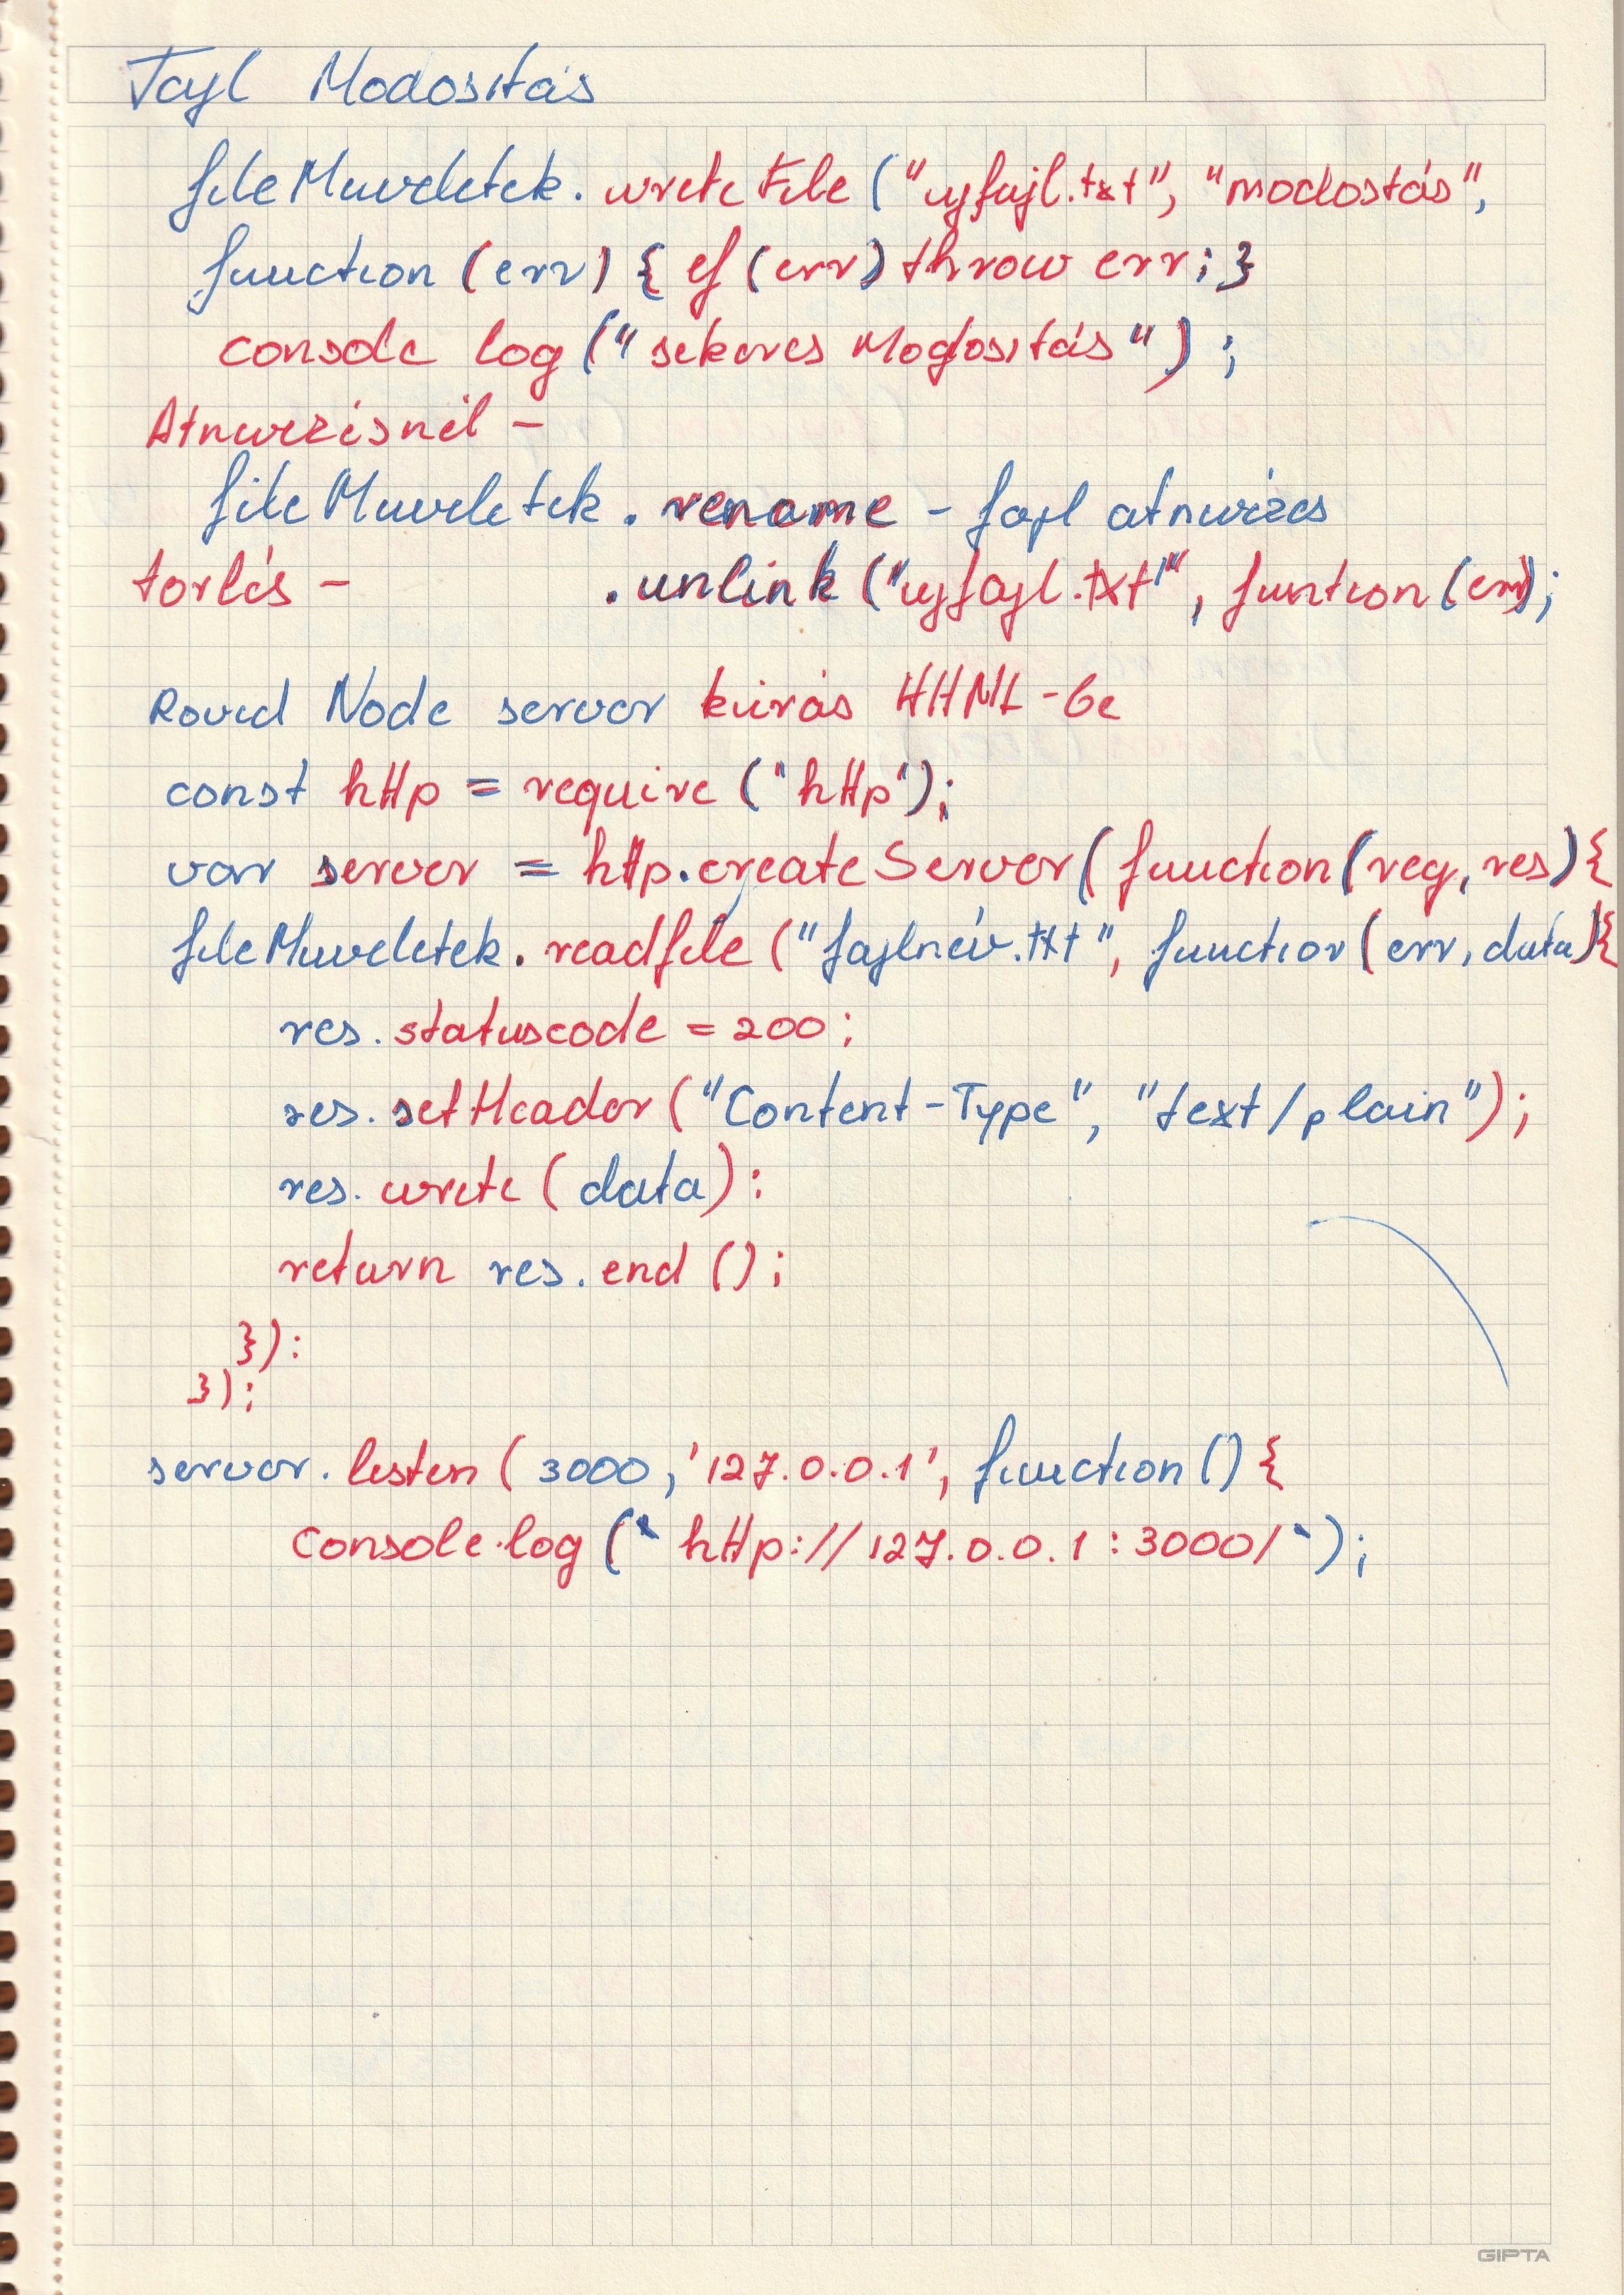 Fajl Modosítás
fileMuveletek.writeFile("ujfajl.txt", "modostás",
function (err) { if (err) throw err; }
console log ("sekeres Modosítás");
Atnevezésnél -
fileMuveletek.rename - fajl atnevezes
torlés - .unlink ("ujfajl.txt", funtion (err);
Rovid Node server kiirás HHML-be
const http = require ("http");
var server = http.createServer(function(req, res){
fileMuveletek.readfile ("fajlnév.txt", function (err, data){
res.statuscode = 200;
res.setHeader("Content-Type", "text/plain");
res.write (data):
return res.end ();
}):
});
server.listen (3000, '127.0.0.1', function () {
console.log (` http://127.0.0.1:3000/`);
GIPTA